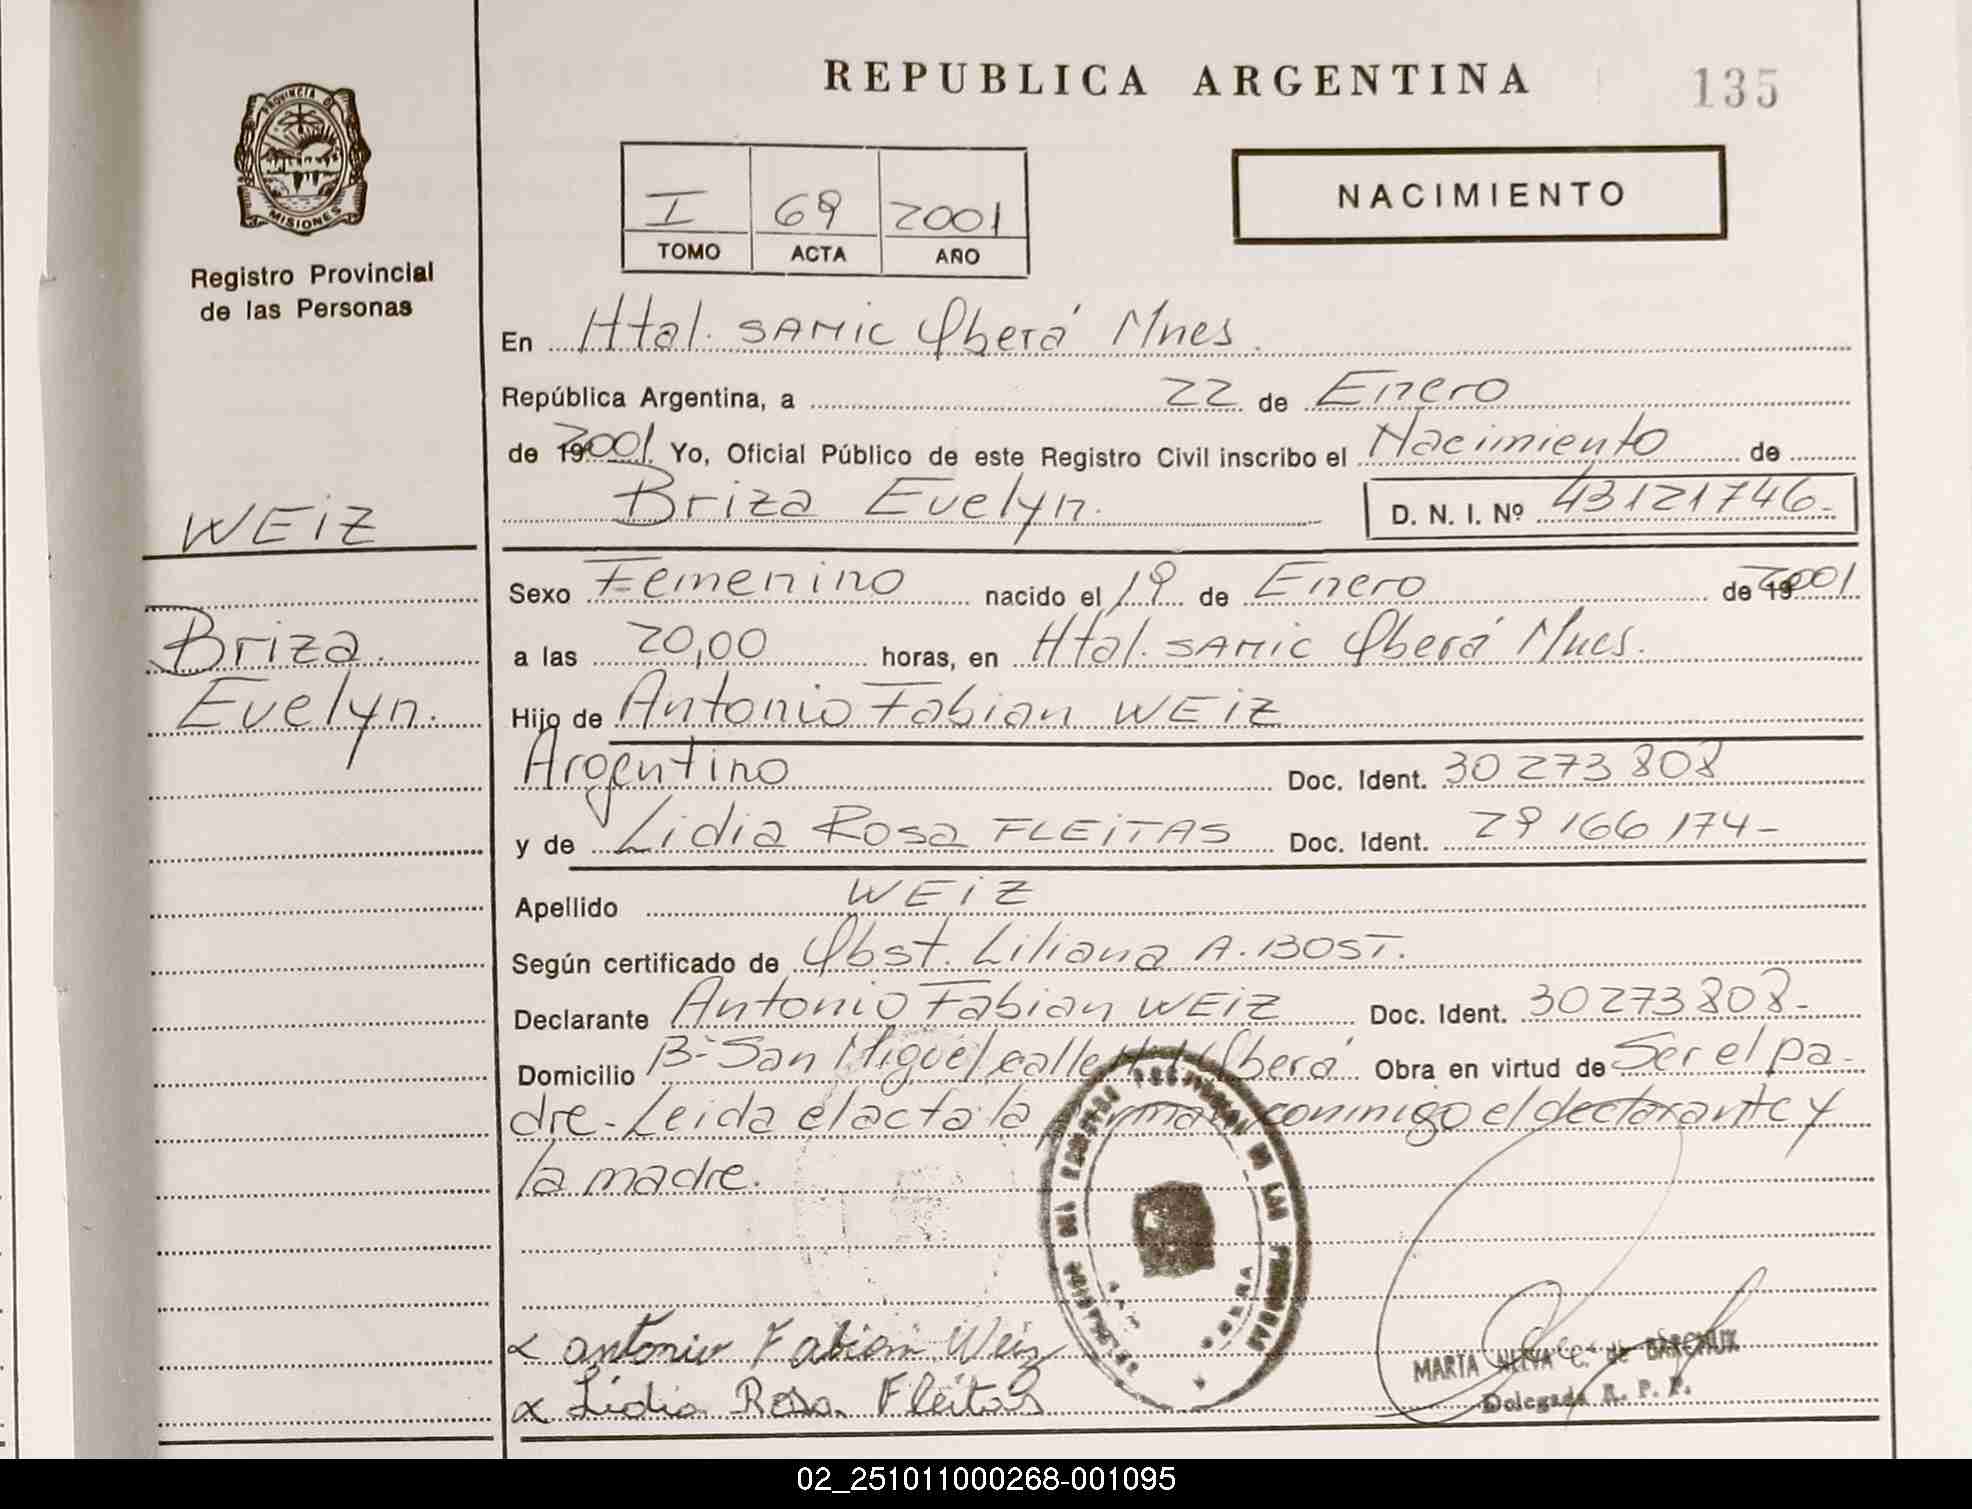 REPUBLICA ARGENTINA
135
PROVINCIA DE
MISIONES
Registro Provincial
de las Personas
I 69 2001
TOMO ACTA AÑO
NACIMIENTO
En Htal. SAMIC Oberá Mnes.
República Argentina, a 22 de Enero
de 2001 Yo, Oficial Público de este Registro Civil inscribo el Nacimiento de
Briza Evelyn. D. N. I. Nº 43121746-
WEiZ
Briza
Evelyn.
Sexo Femenino nacido el 19 de Enero de 2001
a las 20,00 horas, en Htal. SAMIC Oberá Mnes.
Hijo de Antonio Fabian WEiZ
Argentino Doc. Ident. 30 273 808
y de Lidia Rosa FLEiTAS Doc. Ident. 29 166 174-
Apellido WEiZ
Según certificado de Obst. Liliana A. BOST.
Declarante Antonio Fabian WEiZ Doc. Ident. 30273808-
Domicilio B- San Miguel calle Oberá Obra en virtud de Ser el pa-
dre- Leida el acta la conmigo el declarante y
la madre.
DE LAS PERSONAS
OBERA
x antonio Fabian Weiz
x Lidia Rosa Fleitas
MARTA de
Delegada R. P. P.
02_251011000268-001095